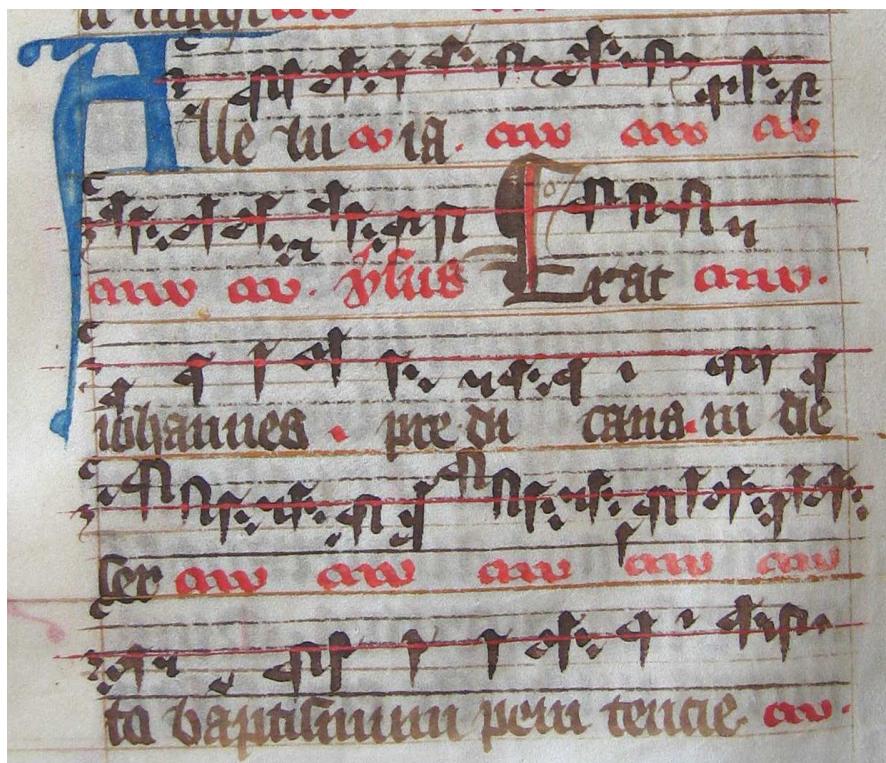 Alle lu ia.
p̄sus Erat
iohannes . pre di cans. in de
ser
to baptismum peni tencie